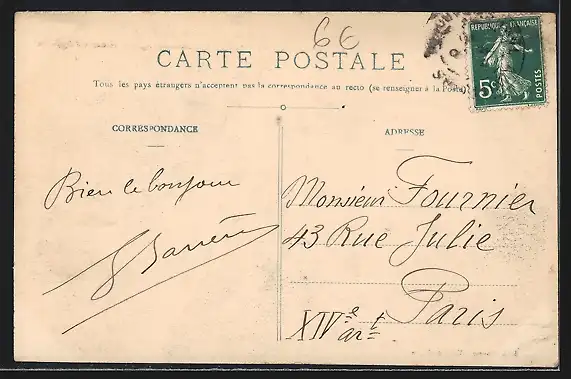 66
CARTE POSTALE
Tous les pays étrangers n'acceptent pas la correspondance au recto (se renseigner à la Poste)
RÉPUBLIQUE FRANÇAISE
5c
POSTES
CORRESPONDANCE
ADRESSE
Bien le bonjour
Monsieur Fournier
43 Rue Julie
Paris
XIVe art